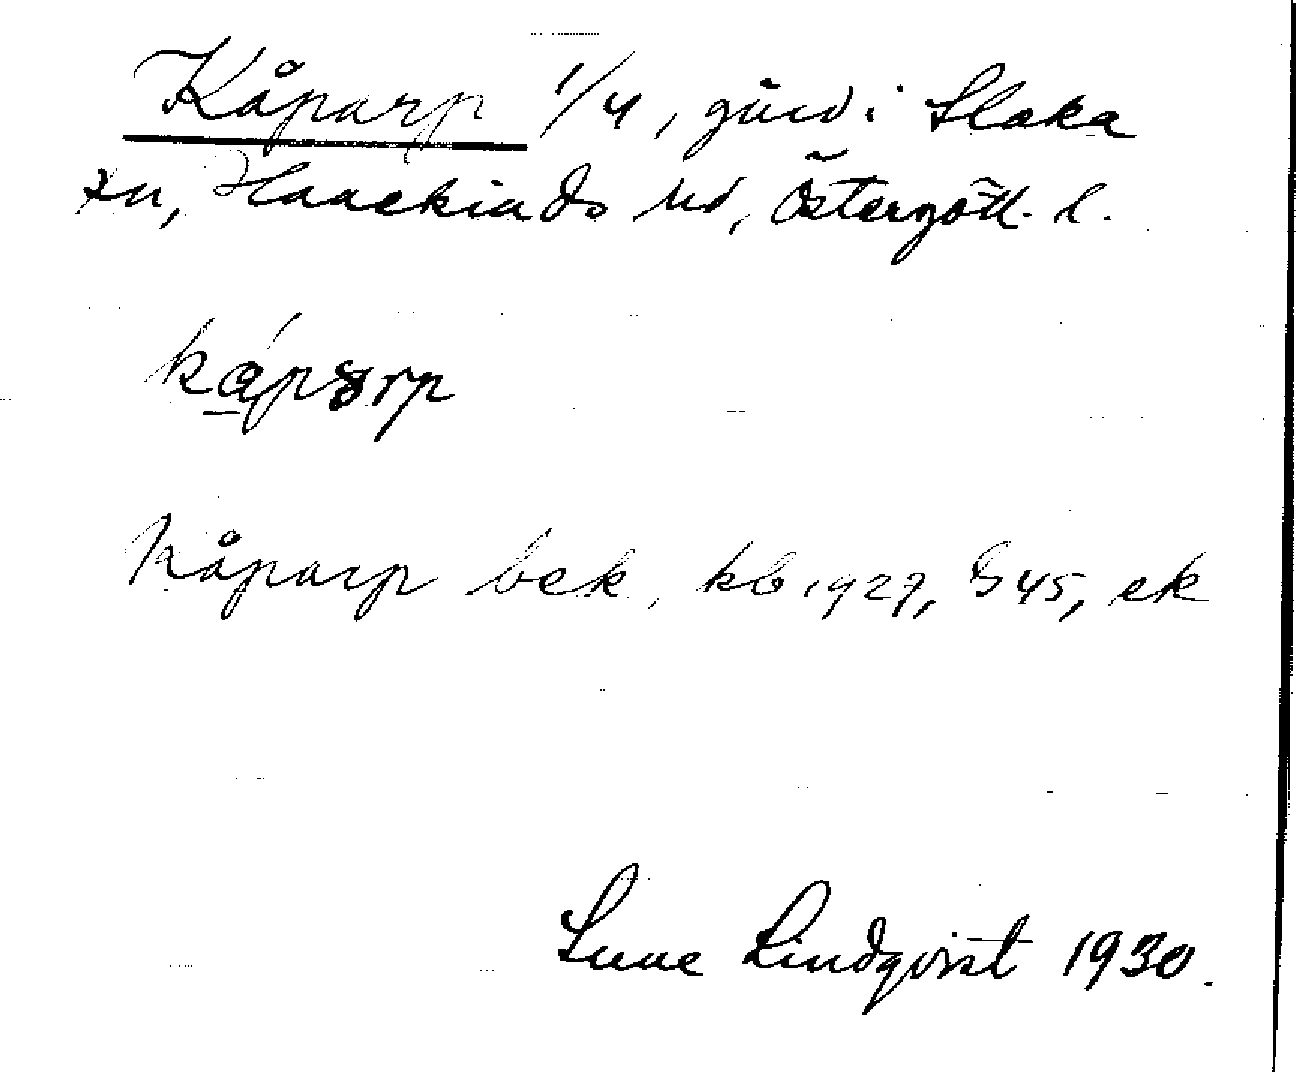 Kåparp 1/4, gård i Slaka
sn, Hanekinds hd, Östergötl. l.
kǻpərp
Kåparp bek. kb 1927, G 45, ek
Sune Lindqvist 1930.